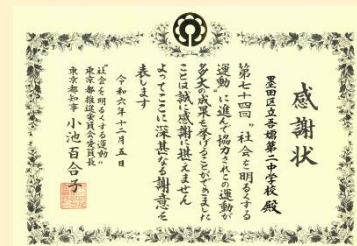 感謝状
墨田区立吾嬬第二中学校 殿
第七十四回“社会を明るくする
運動”に進んで協力されこの運動が
多大の成果を挙げることができました
ことは誠に感謝に堪えません
よってここに深甚なる謝意を
表します
令和六年十二月五日
“社会を明るくする運動”
東京都推進委員会委員長
東京都知事 小池百合子